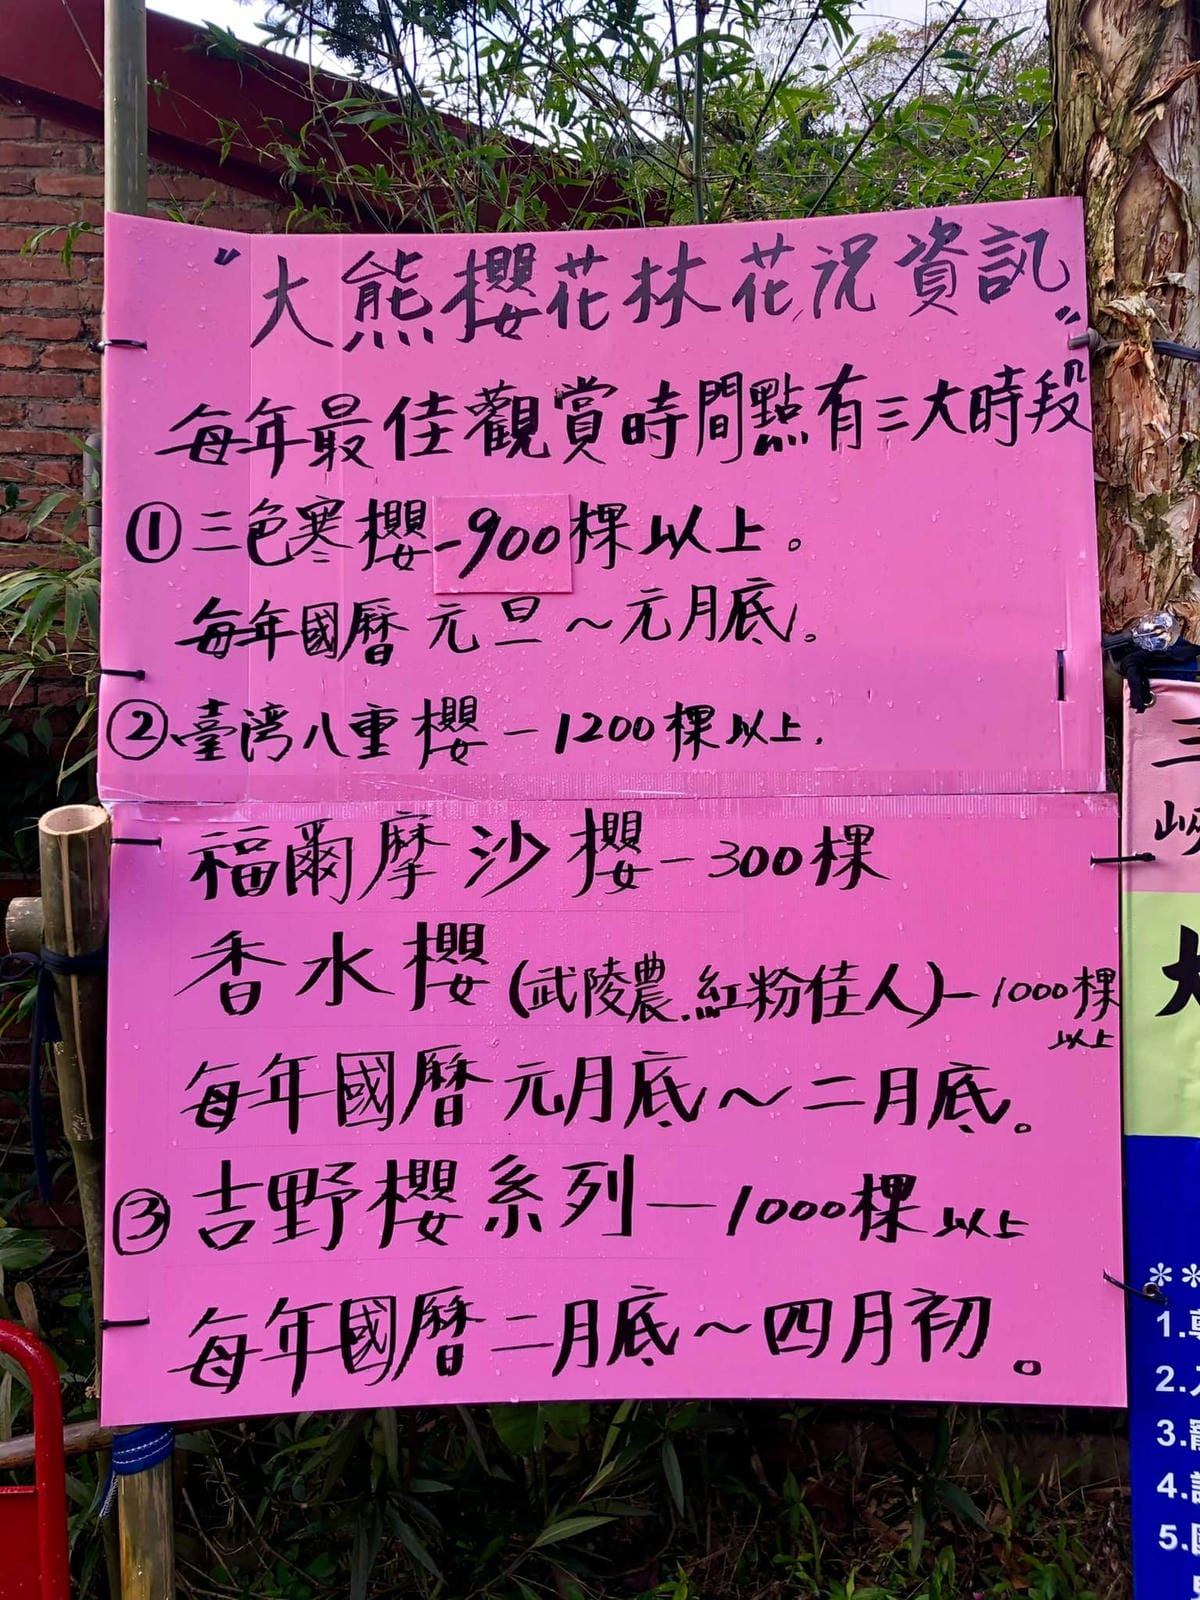 "大熊櫻花林花況資訊"
每年最佳觀賞時間點有三大時段
①三色寒櫻-900棵以上。
每年國曆元旦～元月底。
②臺湾八重櫻－1200棵以上.
福爾摩沙櫻－300棵
香水櫻(武陵農.紅粉佳人)－1000棵
以上
每年國曆元月底～二月底。
③吉野櫻系列—1000棵以上
每年國曆二月底～四月初。
三
峽
大
**
1.
2.
3.
4.
5.